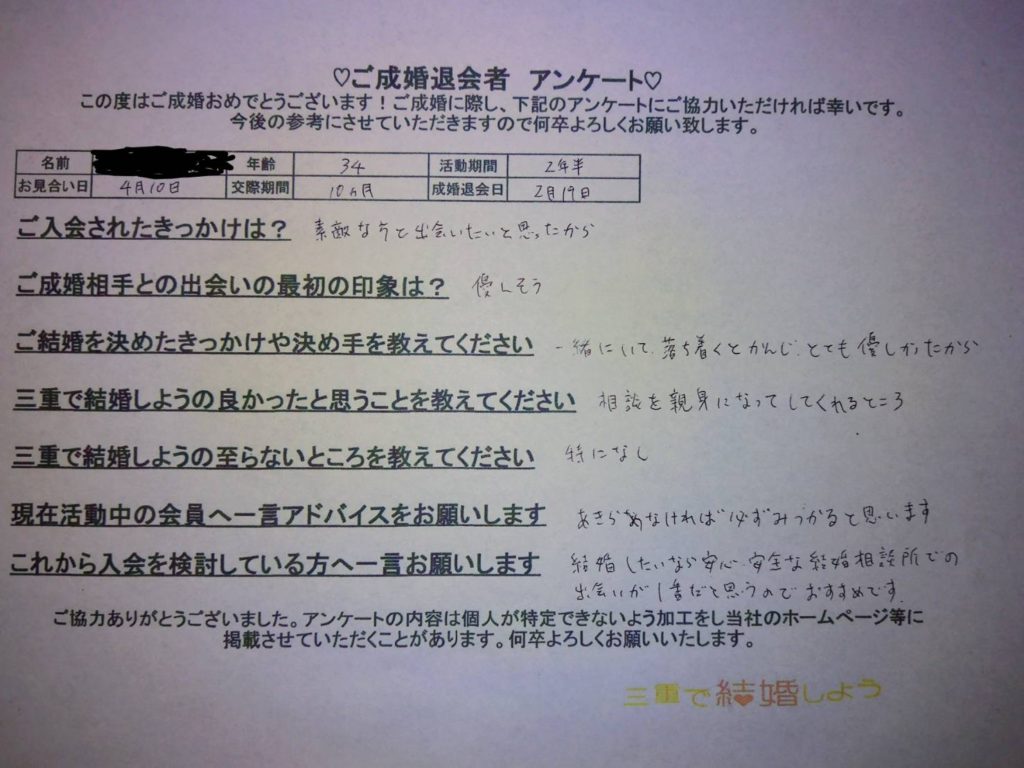 ♡ご成婚退会者 アンケート♡
この度はご成婚おめでとうございます！ご成婚に際し、下記のアンケートにご協力いただければ幸いです。
今後の参考にさせていただきますので何卒よろしくお願い致します。
名前 年齢 34 活動期間 2年半
お見合い日 4月10日 交際期間 10ヵ月 成婚退会日 2月19日
ご入会されたきっかけは？ 素敵な方と出会いたいと思ったから
ご成婚相手との出会いの最初の印象は？ 優しそう
ご結婚を決めたきっかけや決め手を教えてください 一緒にいて、落ち着くとかんじ、とても優しかったから
三重で結婚しようの良かったと思うことを教えてください 相談を親身になってしてくれるところ
三重で結婚しようの至らないところを教えてください 特になし
現在活動中の会員へ一言アドバイスをお願いします あきらめなければ必ずみつかると思います
これから入会を検討している方へ一言お願いします 結婚したいなら安心、安全な結婚相談所での
出会いが1番だと思うのでおすすめです
ご協力ありがとうございました。アンケートの内容は個人が特定できないよう加工をし当社のホームページ等に
掲載させていただくことがあります。何卒よろしくお願いいたします。
三重で結婚しよう